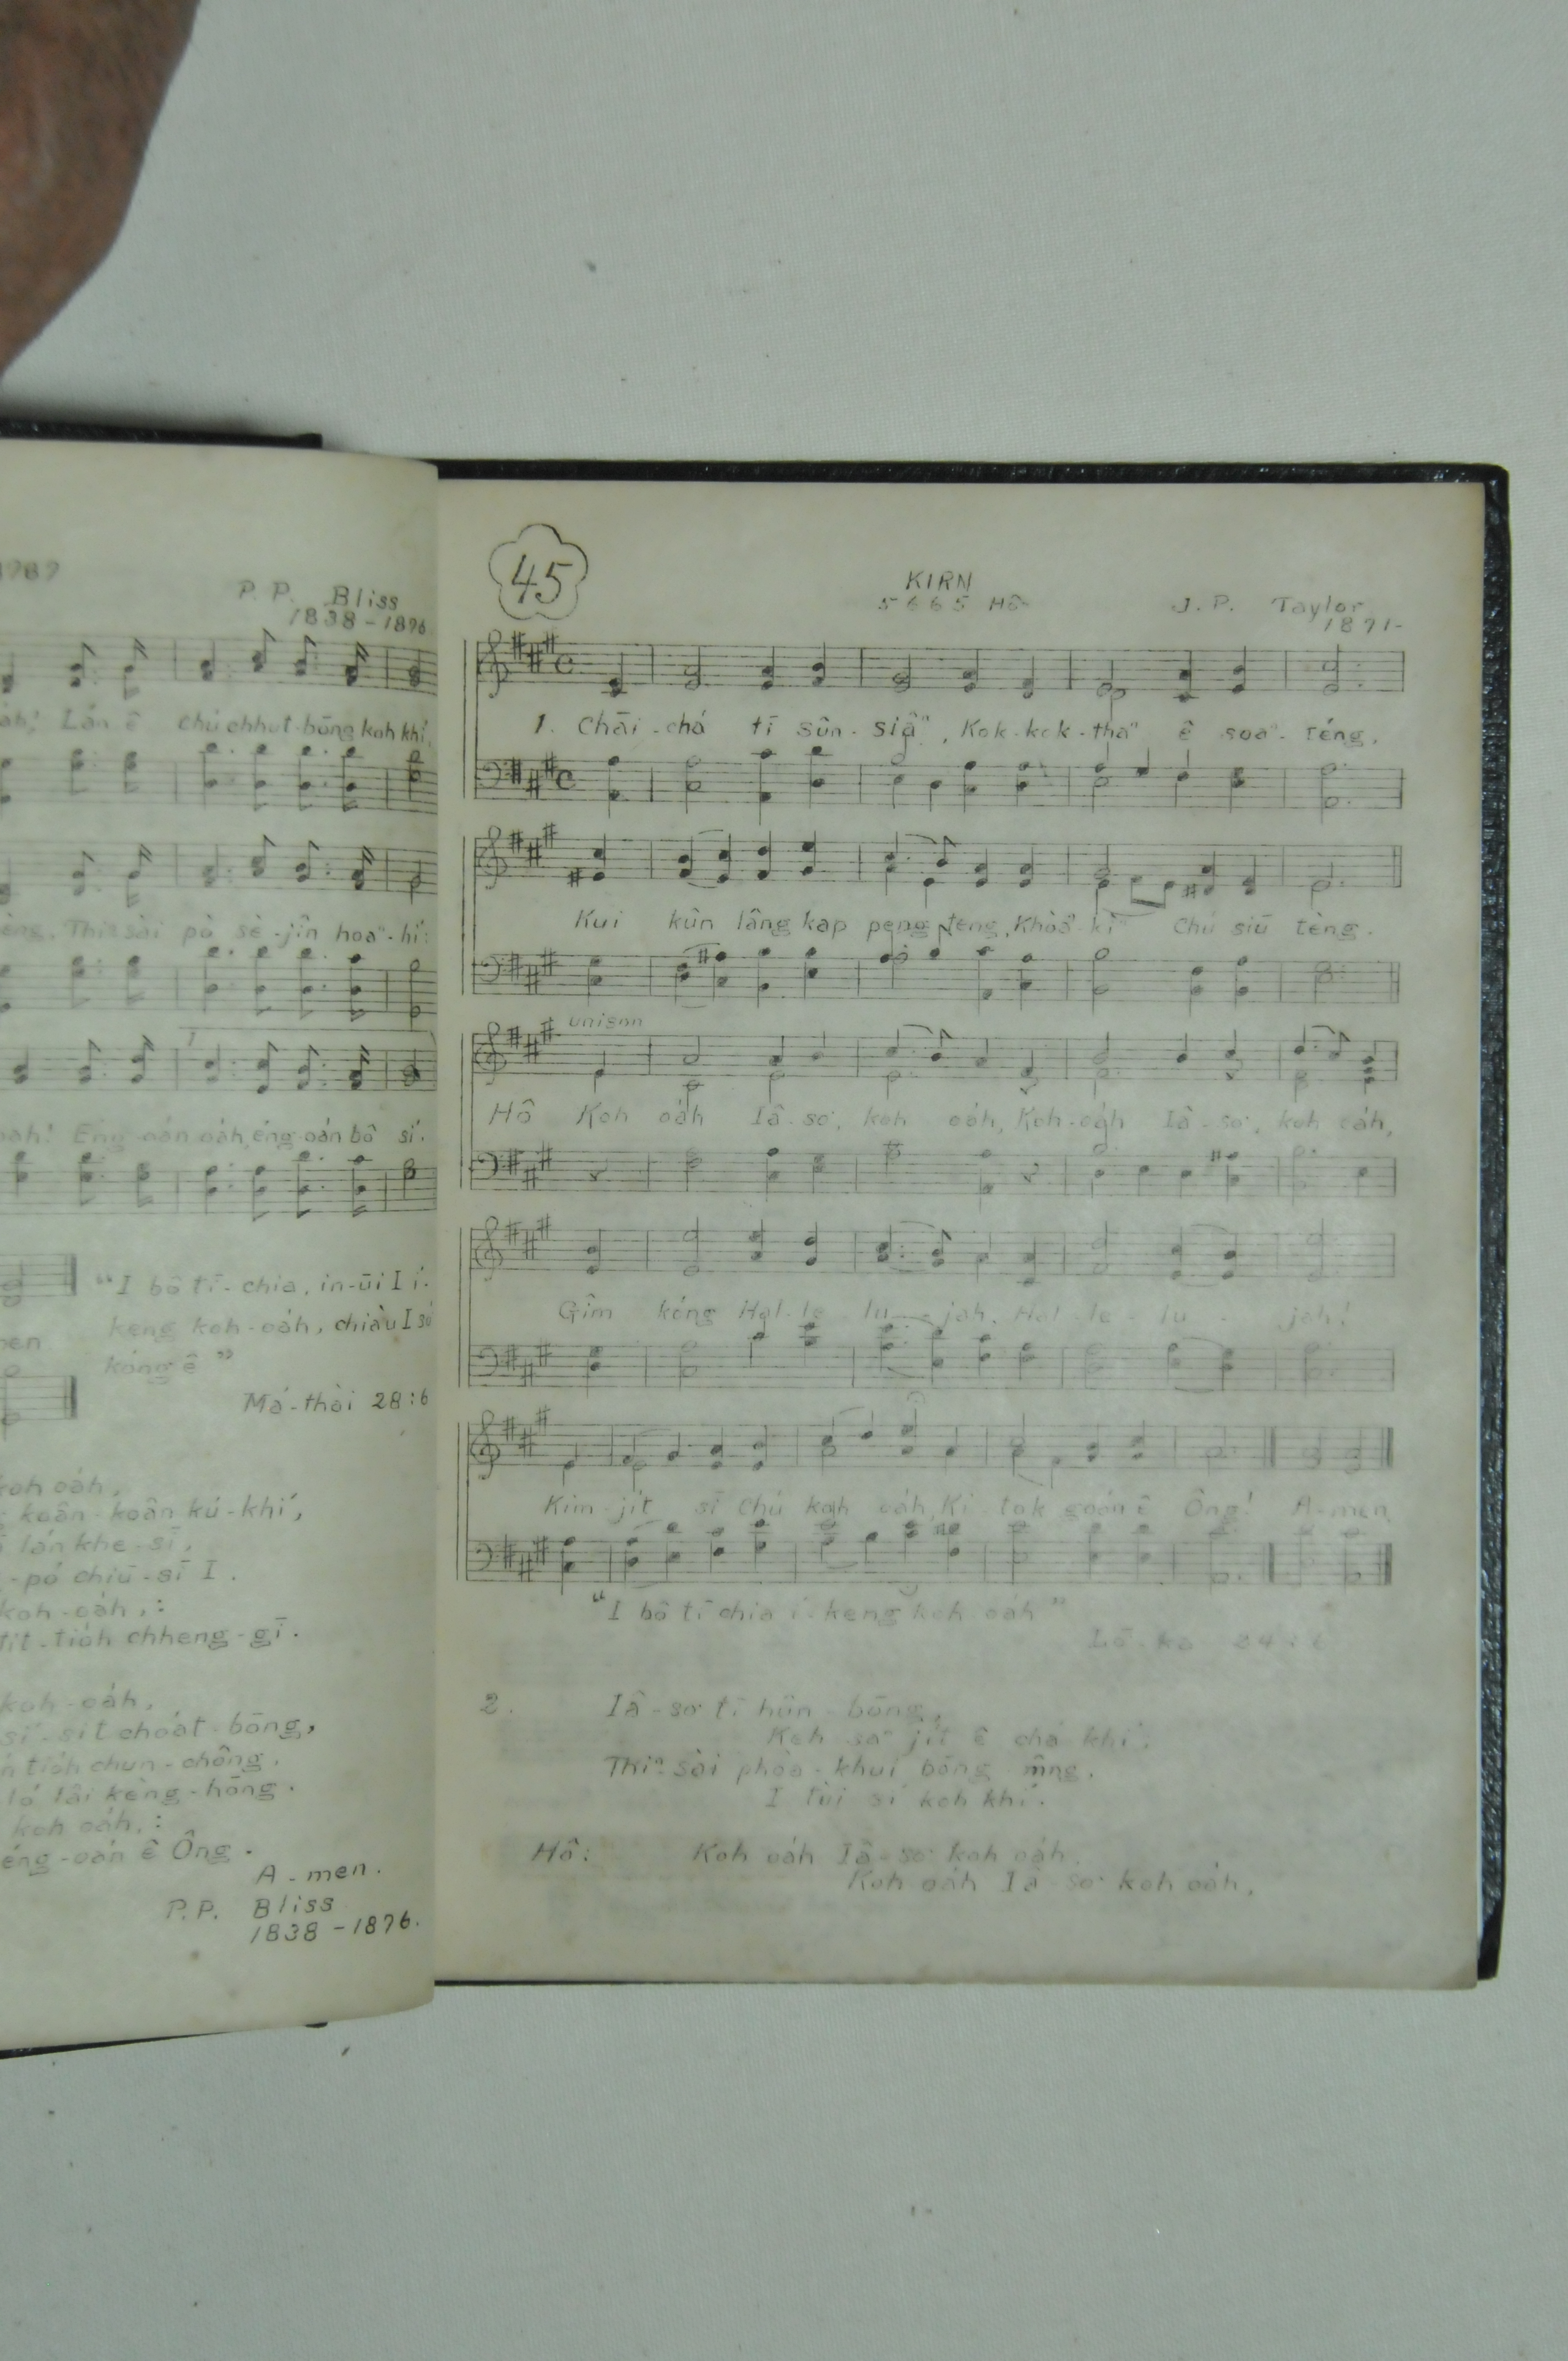 1989
P. P. Bliss
1838-1876
oáh! Lán ê chú chhut-bōng koh khí,
Thiⁿ sài pò sè-jîn hoaⁿ-hí:
Éng-oán oáh, éng-oán bô sí.
"I bô tī-chia, in-ūi I í-
keng koh-oáh, chiàu I só
kóng ê"
Má-thài 28:6
koh oáh,
koân-koân kú-khí,
lán khe-sī,
-pó chiū-sī I.
koh-oáh,:
tit-tióh chheng-gī.
koh-oáh,
sí-sit choát-bōng,
tióh chun-chông.
ló lâi kèng-hōng.
koh oáh,:
éng-oán ê Ông.
A-men.
P.P. Bliss
1838-1876.
45
KIRN
5 6 6 5 Hô
J. P. Taylor
1871-
1. Chāi-chá tī sûn-siâⁿ, Kok-kok-thaⁿ ê soaⁿ-téng,
Kui kûn lâng kap peng-teng, Khòaⁿ-kìⁿ Chú siū tèng.
unison
Hô Koh oáh Iâ-so͘, koh oáh, Koh-oáh Iâ-so͘, koh oáh,
Gîm kóng Hal-le-lu-jah, Hal-le-lu-jah!
Kim-jít sī Chú koh oáh, Ki-tok goán ê Ông! A-men.
"I bô tī chia í-keng koh oáh"
Lō-ka 24:6
2. Iâ-so͘ tī hûn-bōng,
Koh saⁿ jít ê chá khí,
Thiⁿ-sài phòa-khui bōng-mn̂g,
I tùi sí koh khí.
Hô: Koh oáh Iâ-so͘ koh oáh,
Koh oáh Iâ-so͘ koh oáh,